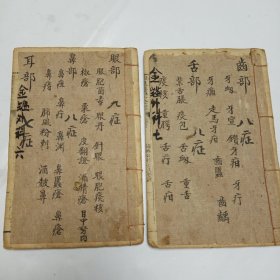 齒部 八症
牙衄 牙宣 鑽牙疳 牙疔
牙癰 走馬牙疳 齒䘌 齒齲
舌部 八症
紫舌脹 痰包 舌衄 重舌
痰核 重腭 舌疔 舌疳
金鑑外科 七
眼部 九症
眼胞菌毒 眼丹 針眼 眼胞痰核
椒瘡 粟瘡 皮翻證 漏睛瘡 目中努肉
鼻部 八症
鼻疽 鼻疔 鼻淵 鼻䘌瘡 鼻瘡
鼻痔 肺風粉刺 酒皶鼻
耳部 七症
金鑑外科 六